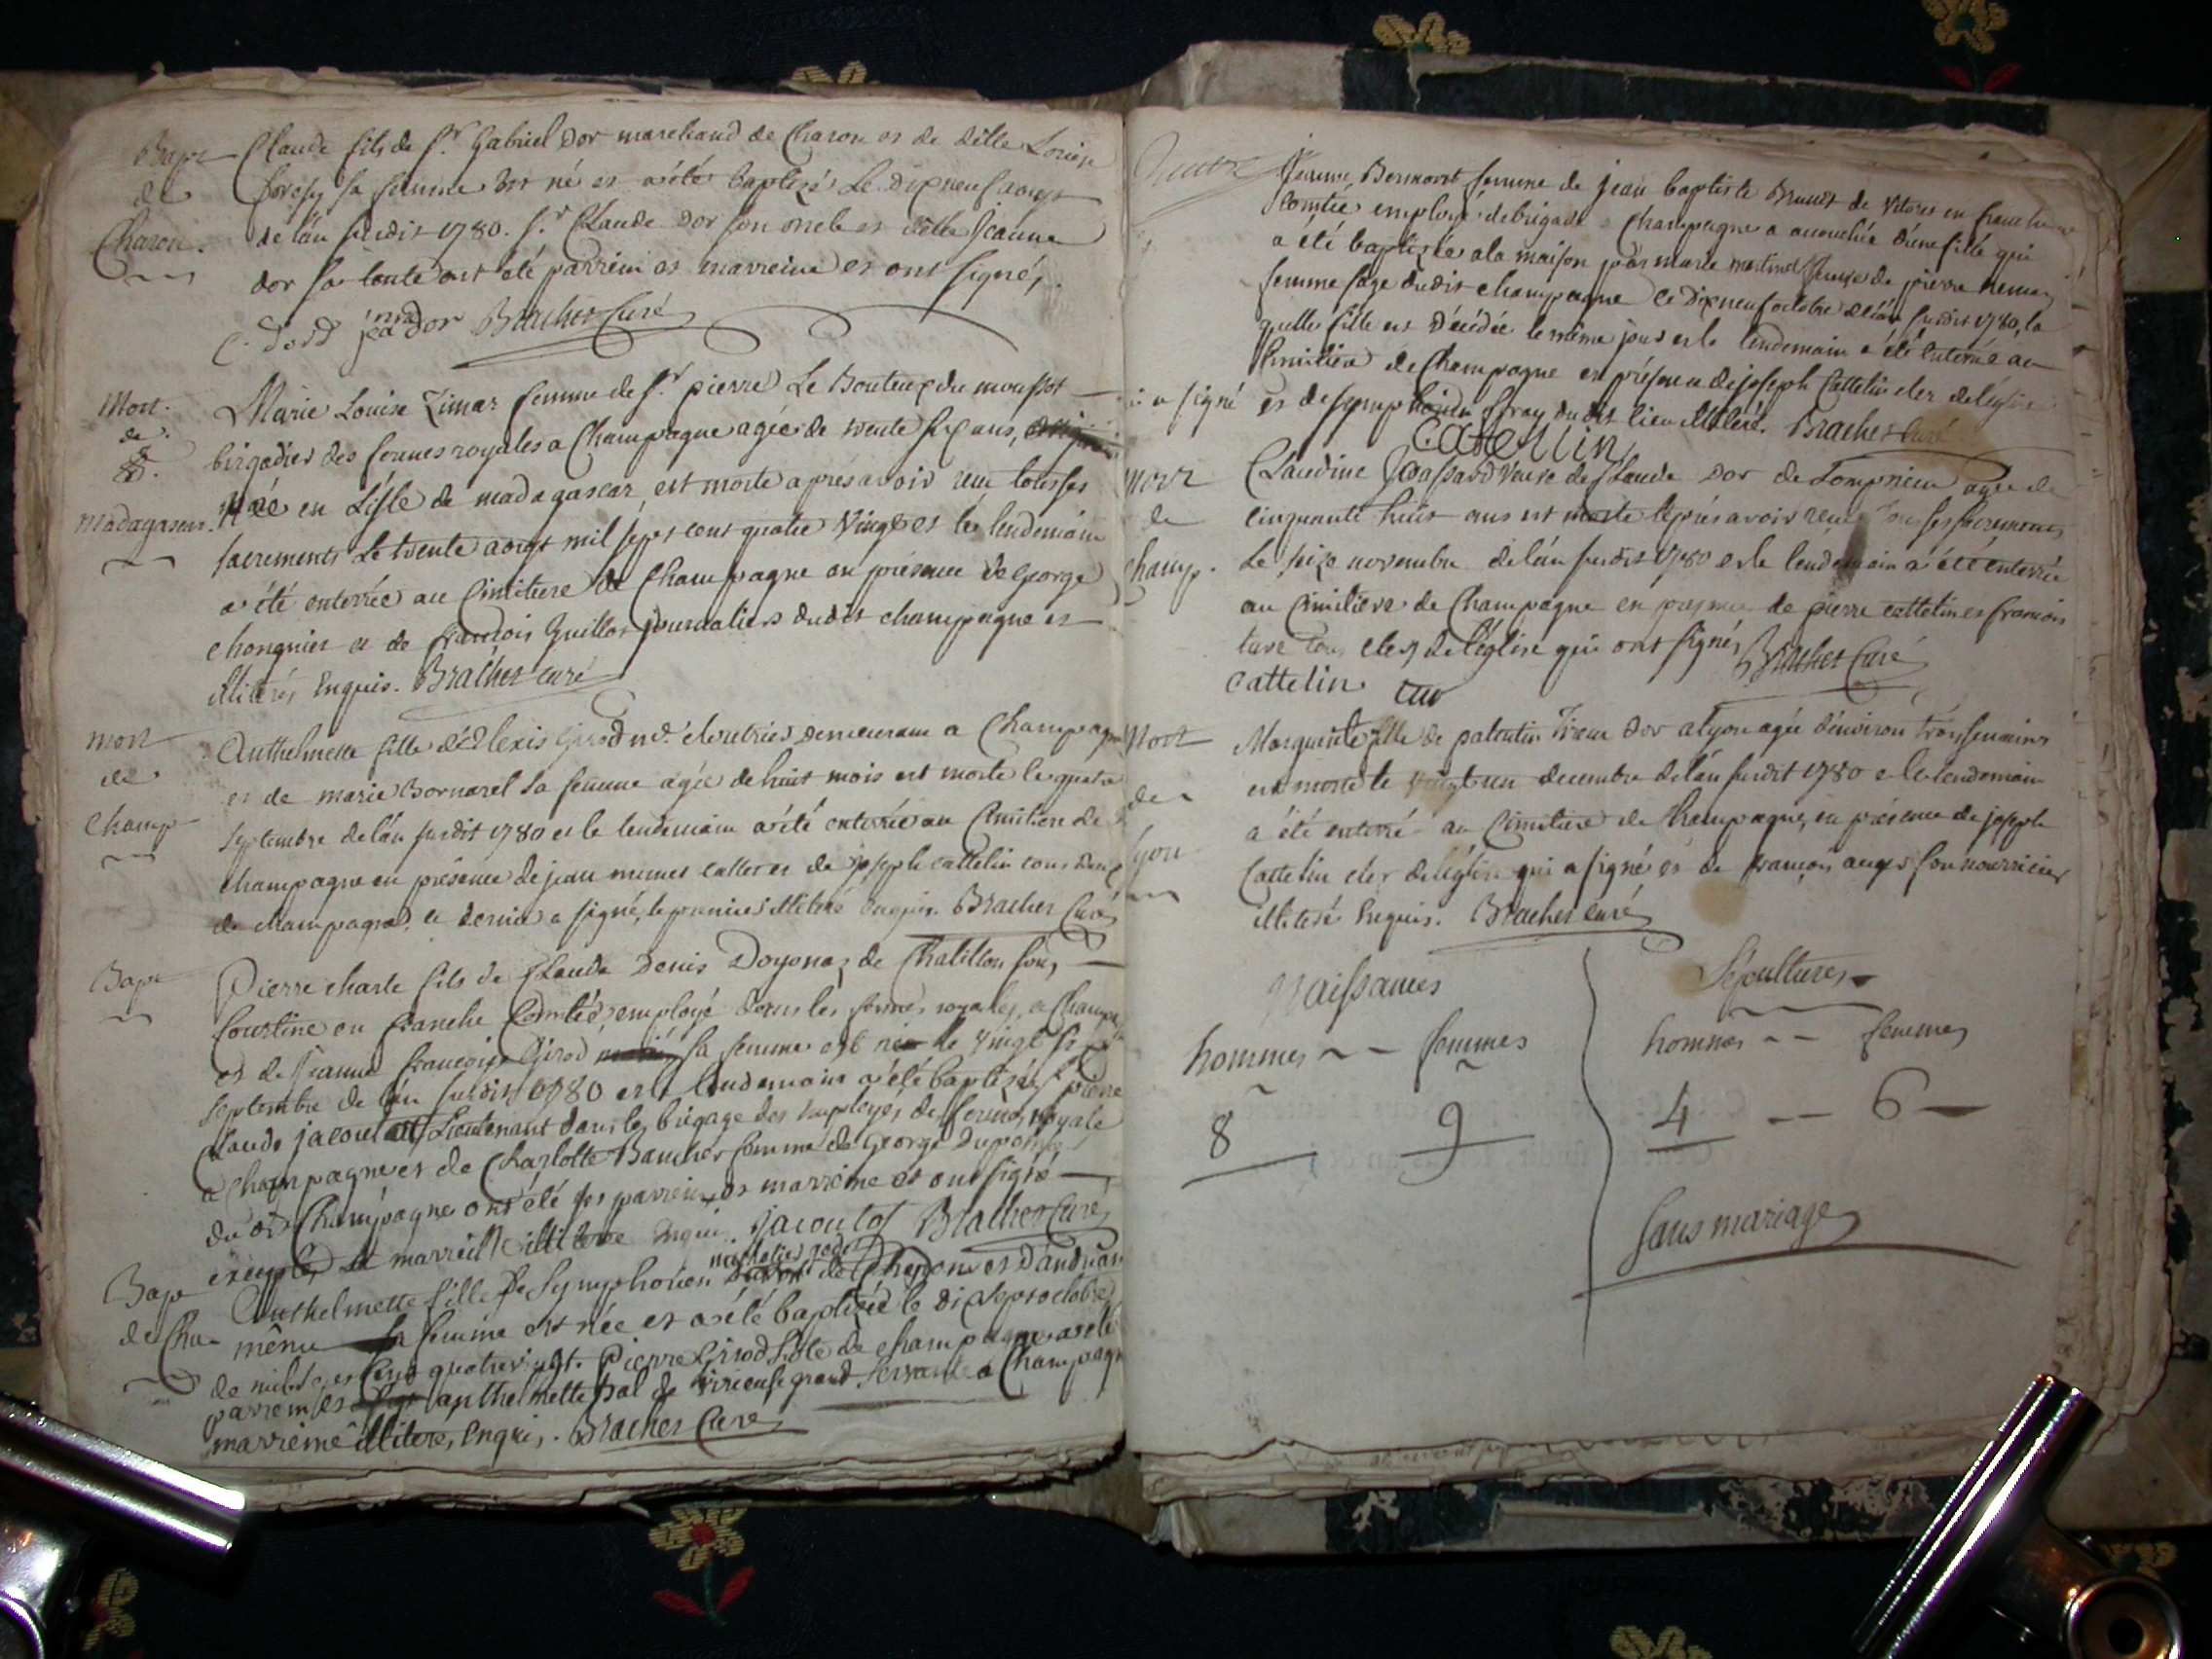 Bapt
de
Charon.
Claude fils de Sr. Gabriel Dor marchand de Charon et de delle Louise
sa femme est né et a été baptizé le dixneuf aoust
de l'an susdit 1780. Sr. Claude Dor son oncle et delle Jeanne
dor sa tante ont été parrein et marreine et ont signé,
dor Brachet Curé
Mort.
de
Madagascar.
Marie Louise Zimar femme de Sr. pierre Le Bouteux du moussot
birgadier des fermes royales a Champagne agée de trente six ans,
née en L'isle de madagascar est morte apres avoir reçu tous ses
sacrements Le trente aoust mil sept cent quatre vingt et le lendemain
a été enterrée au Cimitiere de Champagne en présence de George
et de françois Guillot journaliers dudit champagne et
illiterés Enquis. Brachet curé
mort
de
Champ
Anthelmette fille d'Alexis Girod demeurant a Champagne
et de marie Bornarel sa femme agée de huit mois est morte le quatre
septembre de l'an susdit 1780 et le lendemain a été enterrée au Cimitiere de
champagne en présence de jean et de joseph cattelin tous deux
de champagne, ce dernier a signé, le premier illiteré enquis. Brachet Curé
Bapt
Pierre charle fils de Claude Denis Doyonaz de Chatillon sous
Courtine en franche Comtée, employé dans les fermes royales, a Champagne
et de Jeanne françoise Girod sa femme est né le vingt six
septembre de l'an susdit 1780 et le lendemain a été baptizé, Sr pierre
Claude jacoulot Lieutenant dans les brigage des employés des fermes royale
a Champagne et de Charlotte Baucher femme de George Dupont
dudit Champagne ont été ses parrein et marreine et ont signé
excepté la marreine illiterée Enqui. jacoulot Brachet Curé
Bapt
de Cha
Anthelmette fille de Symphorien de
même sa femme est née et a été baptizée le dix sept octobre
de mil sept cent quatrevingt. Pierre Girod hôte de champagne a été
parrein et anthelmette pal de Virieu le grand servante a Champagne
marreine illiterés, Enquis. Brachet Curé
Jeanne Bermont femme de jean baptiste Brunet de en franche
Comtée employé de brigade a Champagne a accouchée d'une fille qui
a été baptizée a la maison par marie martinet femme de pierre
femme sage dudit champagne le dixneuf octobre de l'an susdit 1780, la
quelle fille est décédée le même jour et le lendemain a été enterrée au
Cimitiere de Champagne en présence de joseph Cattelin cler de l'église
qui a signé et de symphorien dudit lieu illiteré. Brachet Curé
Cattellin
Mort
de
Champ.
Claudine veuve de Claude Dor de Lompnieu agée de
cinquante huit ans est morte apres avoir reçu tous ses sacrements
Le seize novembre de l'an susdit 1780 et le lendemain a été enterrée
au Cimitiere de Champagne en présence de pierre cattelin et françois
tous clers de l'église qui ont signés Brachet Curé
cattelin
Mort
de
Lyon
Marguerite fille de palentin tireur d'or a Lyon agée d'environ trois semaines
est morte le vingt un decembre de l'an susdit 1780 et le lendemain
a été enterré au Cimitiere de Champagne, en présence de joseph
Cattelin cler de l'église qui a signé et de françois son nourricier
illiteré Enquis. Brachet curé
Naissances
hommes ~ - femmes
8 9
Sépultures
hommes - - femmes
4 -- 6
Sans mariage